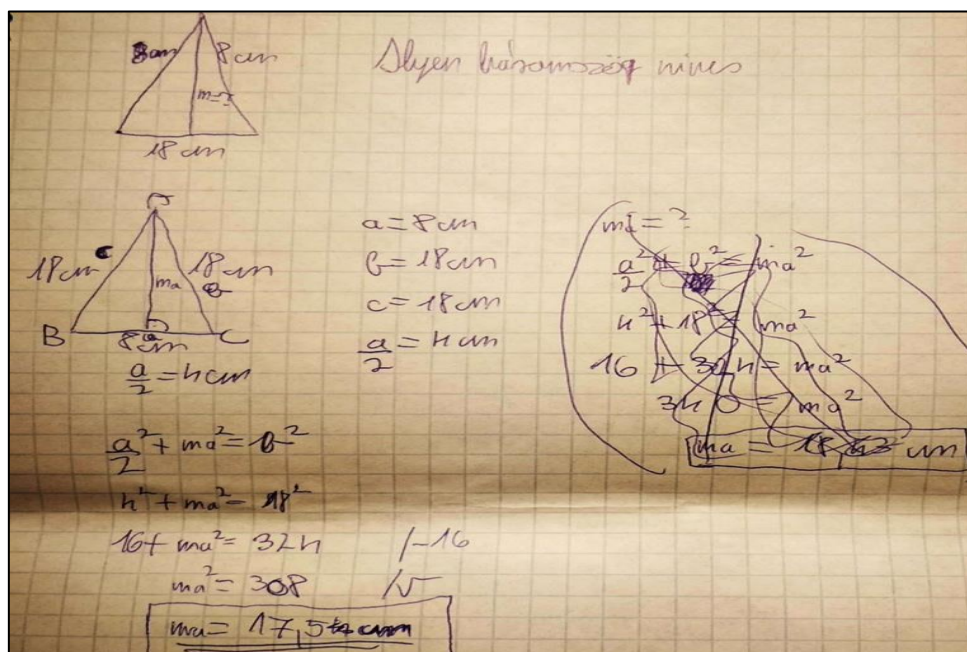 8cm 8cm
m=?
18 cm
Ilyen háromszög nincs
18cm c 18cm b
ma
B a C
8cm
a/2 = 4cm
a = 8cm
b = 18cm
c = 18cm
a/2 = 4cm
a²/2 + ma² = b²
4² + ma² = 18²
16 + ma² = 324 /-16
ma² = 308 /√
ma = 17,54 cm
= ?
a²/2 + b² = ma²
4² + 18² = ma²
16 + 324 = ma²
340 = ma²
ma = 18,43 cm